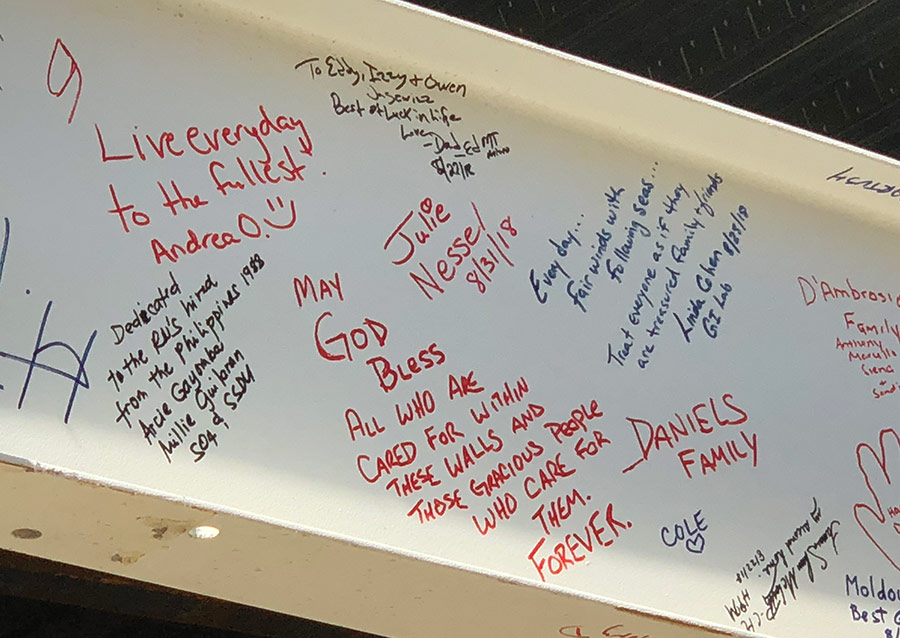 To Eddy, Izzy + Owen
Best of Luck in Life
Love
-Dad Ed MT
8/22/18
Live everyday
to the fullest!
Andrea O.
Julie
Nessel
8/31/18
Every day...
Fair winds with
Following seas...
Treat everyone as if they
are treasured Family + friends
Linda Chen 8/23/18
GI Lab
Dedicated
to the RN's hired
from the Philippines 1988
Arcie Gayomba
Millie Guibran
SO4 & SSDU
MAY
GOD
BLESS
ALL WHO ARE
CARED FOR WITHIN
THESE WALLS AND
THOSE GRACIOUS PEOPLE
WHO CARE FOR
THEM.
FOREVER.
DANIELS
FAMILY
COLE
D'Ambrosi
Family
Anthony
Siena
+
Moldo
Best
8/